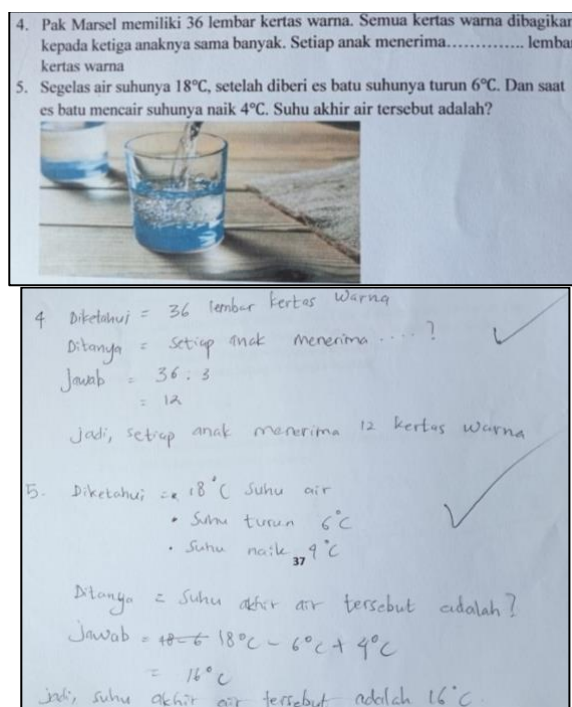 4. Pak Marsel memiliki 36 lembar kertas warna. Semua kertas warna dibagikan
kepada ketiga anaknya sama banyak. Setiap anak menerima.............. lembar
kertas warna
5. Segelas air suhunya 18°C, setelah diberi es batu suhunya turun 6°C. Dan saat
es batu mencair suhunya naik 4°C. Suhu akhir air tersebut adalah?
4 Diketahui = 36 lembar kertas warna
Ditanya = setiap anak menerima ....?
Jawab = 36 : 3
= 12
jadi, setiap anak menerima 12 kertas warna
5. Diketahui = 18°C suhu air
• Suhu turun 6°C
• Suhu naik 4°C
37
Ditanya = Suhu akhir air tersebut adalah?
Jawab = 18-6 18°C - 6°C + 4°C
= 16°C
jadi, suhu akhir air tersebut adalah 16°C.